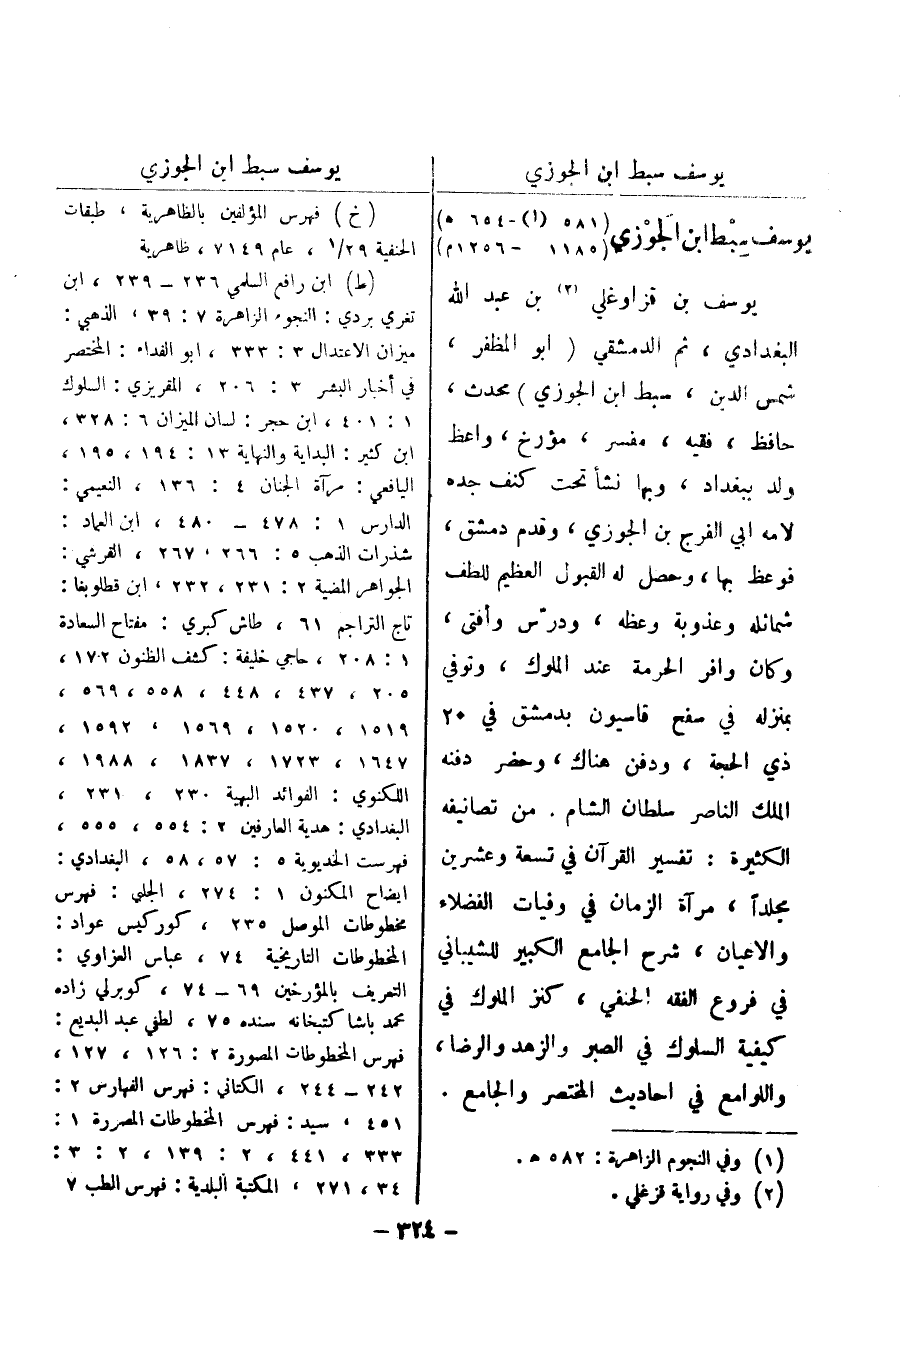 يوسف سبط ابن الجوزي
يوسف سِبْط ابن الجَوْزي (٥٨١ (١)-٦٥٤ ه)
(١١٨٥ - ١٢٥٦م)
يوسف بن قزاوغلي (٢) بن عبد الله
البغدادي ، ثم الدمشقي ( ابو المظفر ،
شمس الدين ، سبط ابن الجوزي ) محدث ،
حافظ ، فقيه ، مفسر ، مؤرخ ، واعظ
ولد ببغداد ، وبها نشأ تحت كنف جده
لامه ابي الفرج بن الجوزي ، وقدم دمشق ،
فوعظ بها ، وحصل له القبول العظيم للطف
شمائله وعذوبة وعظه ، ودرّس وأفتى ،
وكان وافر الحرمة عند الملوك ، وتوفي
بمنزله في سفح قاسيون بدمشق في ٢٠
ذي الحجة ، ودفن هناك ، وحضر دفنه
الملك الناصر سلطان الشام . من تصانيفه
الكثيرة : تفسير القرآن في تسعة وعشرين
مجلداً ، مرآة الزمان في وفيات الفضلاء
والاعيان ، شرح الجامع الكبير للشيباني
في فروع الفقه الحنفي ، كنز الملوك في
كيفية السلوك في الصبر والزهد والرضا ،
واللوامع في احاديث المختصر والجامع .
(١) وفي النجوم الزاهرة : ٥٨٢ ه .
(٢) وفي رواية قزغلي .
يوسف سبط ابن الجوزي
(خ) فهرس المؤلفين بالظاهرية ، طبقات
الحنفية ١/٢٩ ، عام ٧١٤٩ ، ظاهرية
(ط) ابن رافع السلمي ٢٣٦ - ٢٣٩ ، ابن
تغري بردي : النجوم الزاهرة ٧ : ٣٩ ، الذهبي :
ميزان الاعتدال ٣ : ٣٣٣ ، ابو الفداء : المختصر
في أخبار البشر ٣ : ٢٠٦ ، المقريزي : السلوك
١ : ٤٠١ ، ابن حجر : لسان الميزان ٦ : ٣٢٨ ،
ابن كثير : البداية والنهاية ١٣ : ١٩٤ ، ١٩٥ ،
اليافعي : مرآة الجنان ٤ : ١٣٦ ، النعيمي :
الدارس ١ : ٤٧٨ - ٤٨٠ ، ابن العماد :
شذرات الذهب ٥ : ٢٦٦ ، ٢٦٧ ، القرشي :
الجواهر المضية ٢ : ٢٣١ ، ٢٣٢ ، ابن قطلوبغا :
تاج التراجم ٦١ ، طاش كبري : مفتاح السعادة
١ : ٢٠٨ ، حاجي خليفة : كشف الظنون ١٧٢ ،
٢٠٥ ، ٤٣٧ ، ٤٤٨ ، ٥٥٨ ، ٥٦٩ ،
١٥١٩ ، ١٥٢٠ ، ١٥٦٩ ، ١٥٩٢ ،
١٦٤٧ ، ١٧٢٣ ، ١٨٣٧ ، ١٩٨٨ ،
اللكنوي : الفوائد البهية ٢٣٠ ، ٢٣١ ،
البغدادي : هدية العارفين ٢ : ٥٥٤ ، ٥٥٥ ،
فهرست الخديوية ٥ : ٥٧ ، ٥٨ ، البغدادي :
ايضاح المكنون ١ : ٢٧٤ ، الجلبي : فهرس
مخطوطات الموصل ٢٣٥ ، كوركيس عواد :
المخطوطات التاريخية ٧٤ ، عباس العزاوي :
التعريف بالمؤرخين ٦٩ - ٧٤ ، كوبرلي زاده
محمد باشا كتبخانه سنده ٧٥ ، لطفي عبد البديع :
فهرس المخطوطات المصورة ٢ : ١٢٦ ، ١٢٧ ،
٢٤٢ - ٢٤٤ ، الكتاني : فهرس الفهارس ٢ :
٤٥١ ، سيد : فهرس المخطوطات المصورة ١ :
٣٣٣ ، ٤٤١ ، ٢ : ١٣٩ ، ٢ : ٣ :
٣٤ ، ٢٧١ ، المكتبة البلدية : فهرس الطب ٧
- ٣٢٤ -